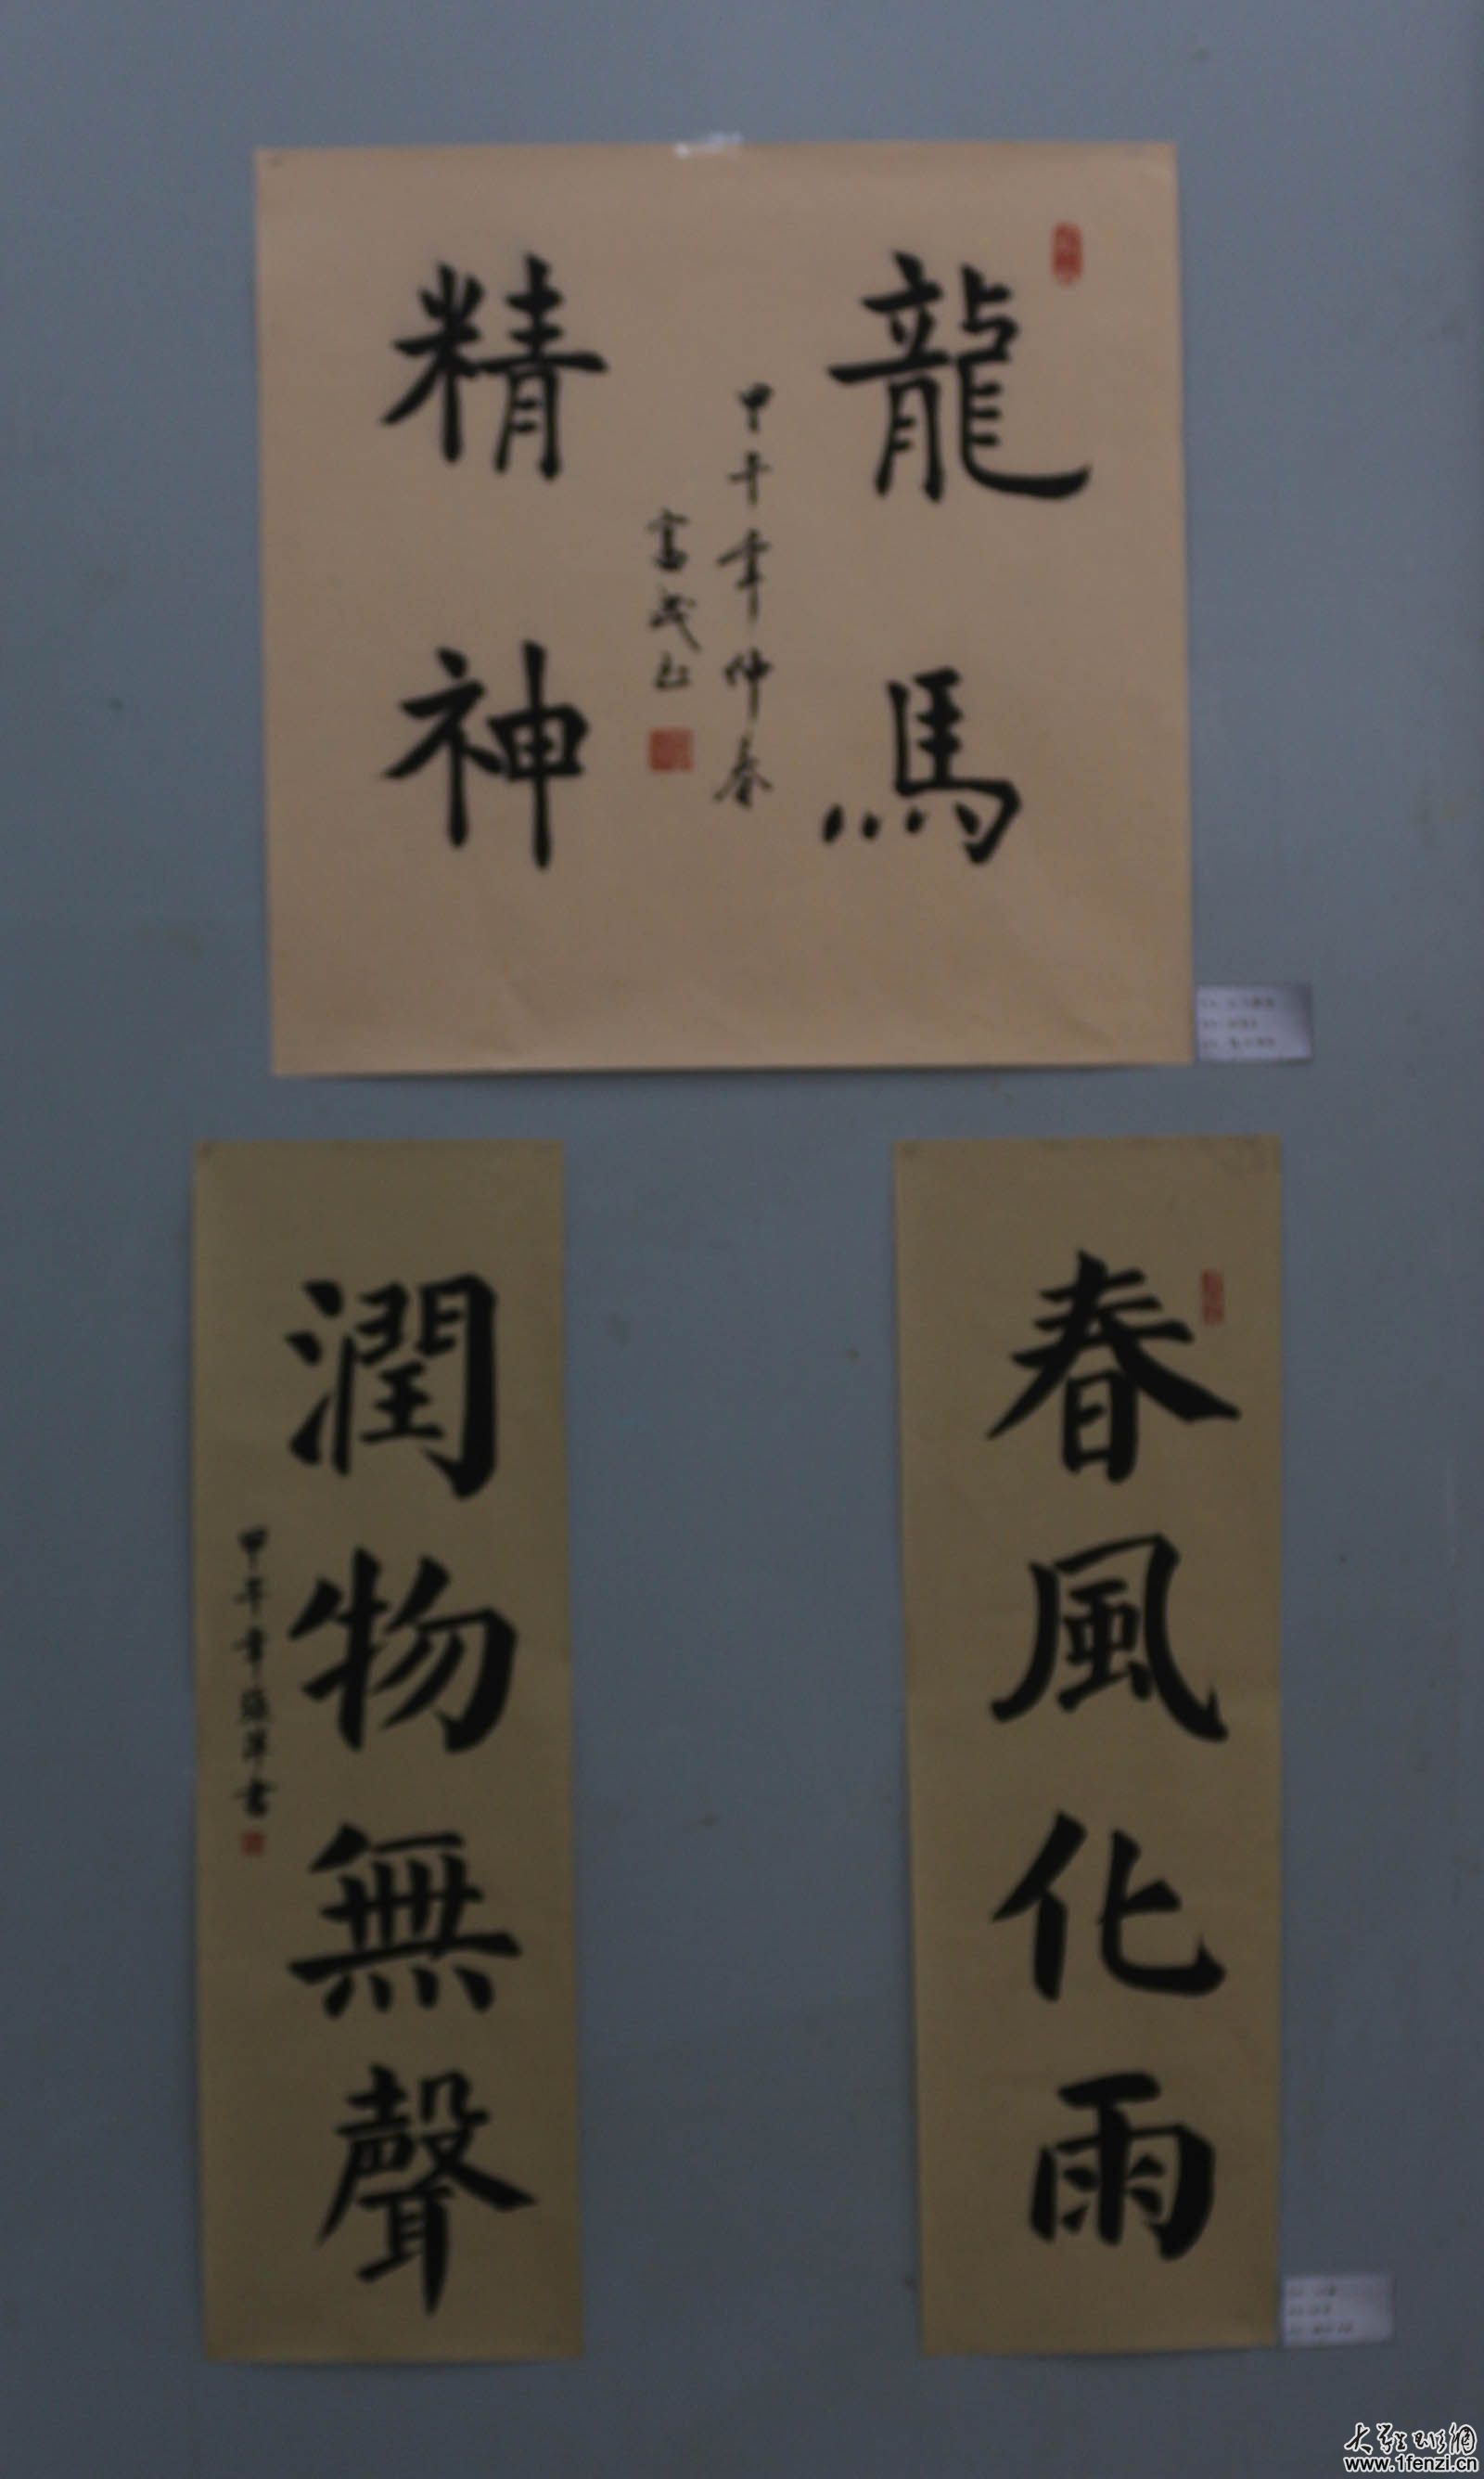 龍馬
精神
甲午年仲春
富成书
春風化雨
潤物無聲
甲午年
書
www.1fenzi.cn